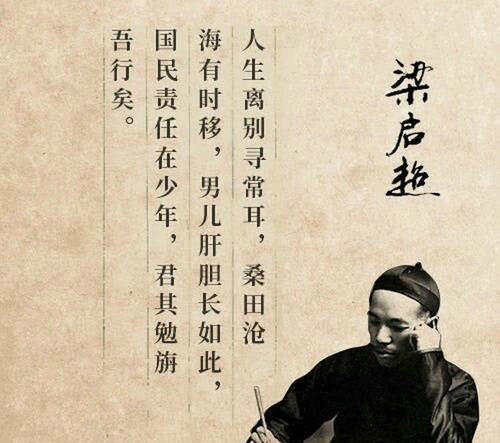 梁启超
人生离别寻常耳，桑田沧
海有时移，男儿肝胆长如此，
国民责任在少年，君其勉旃
吾行矣。